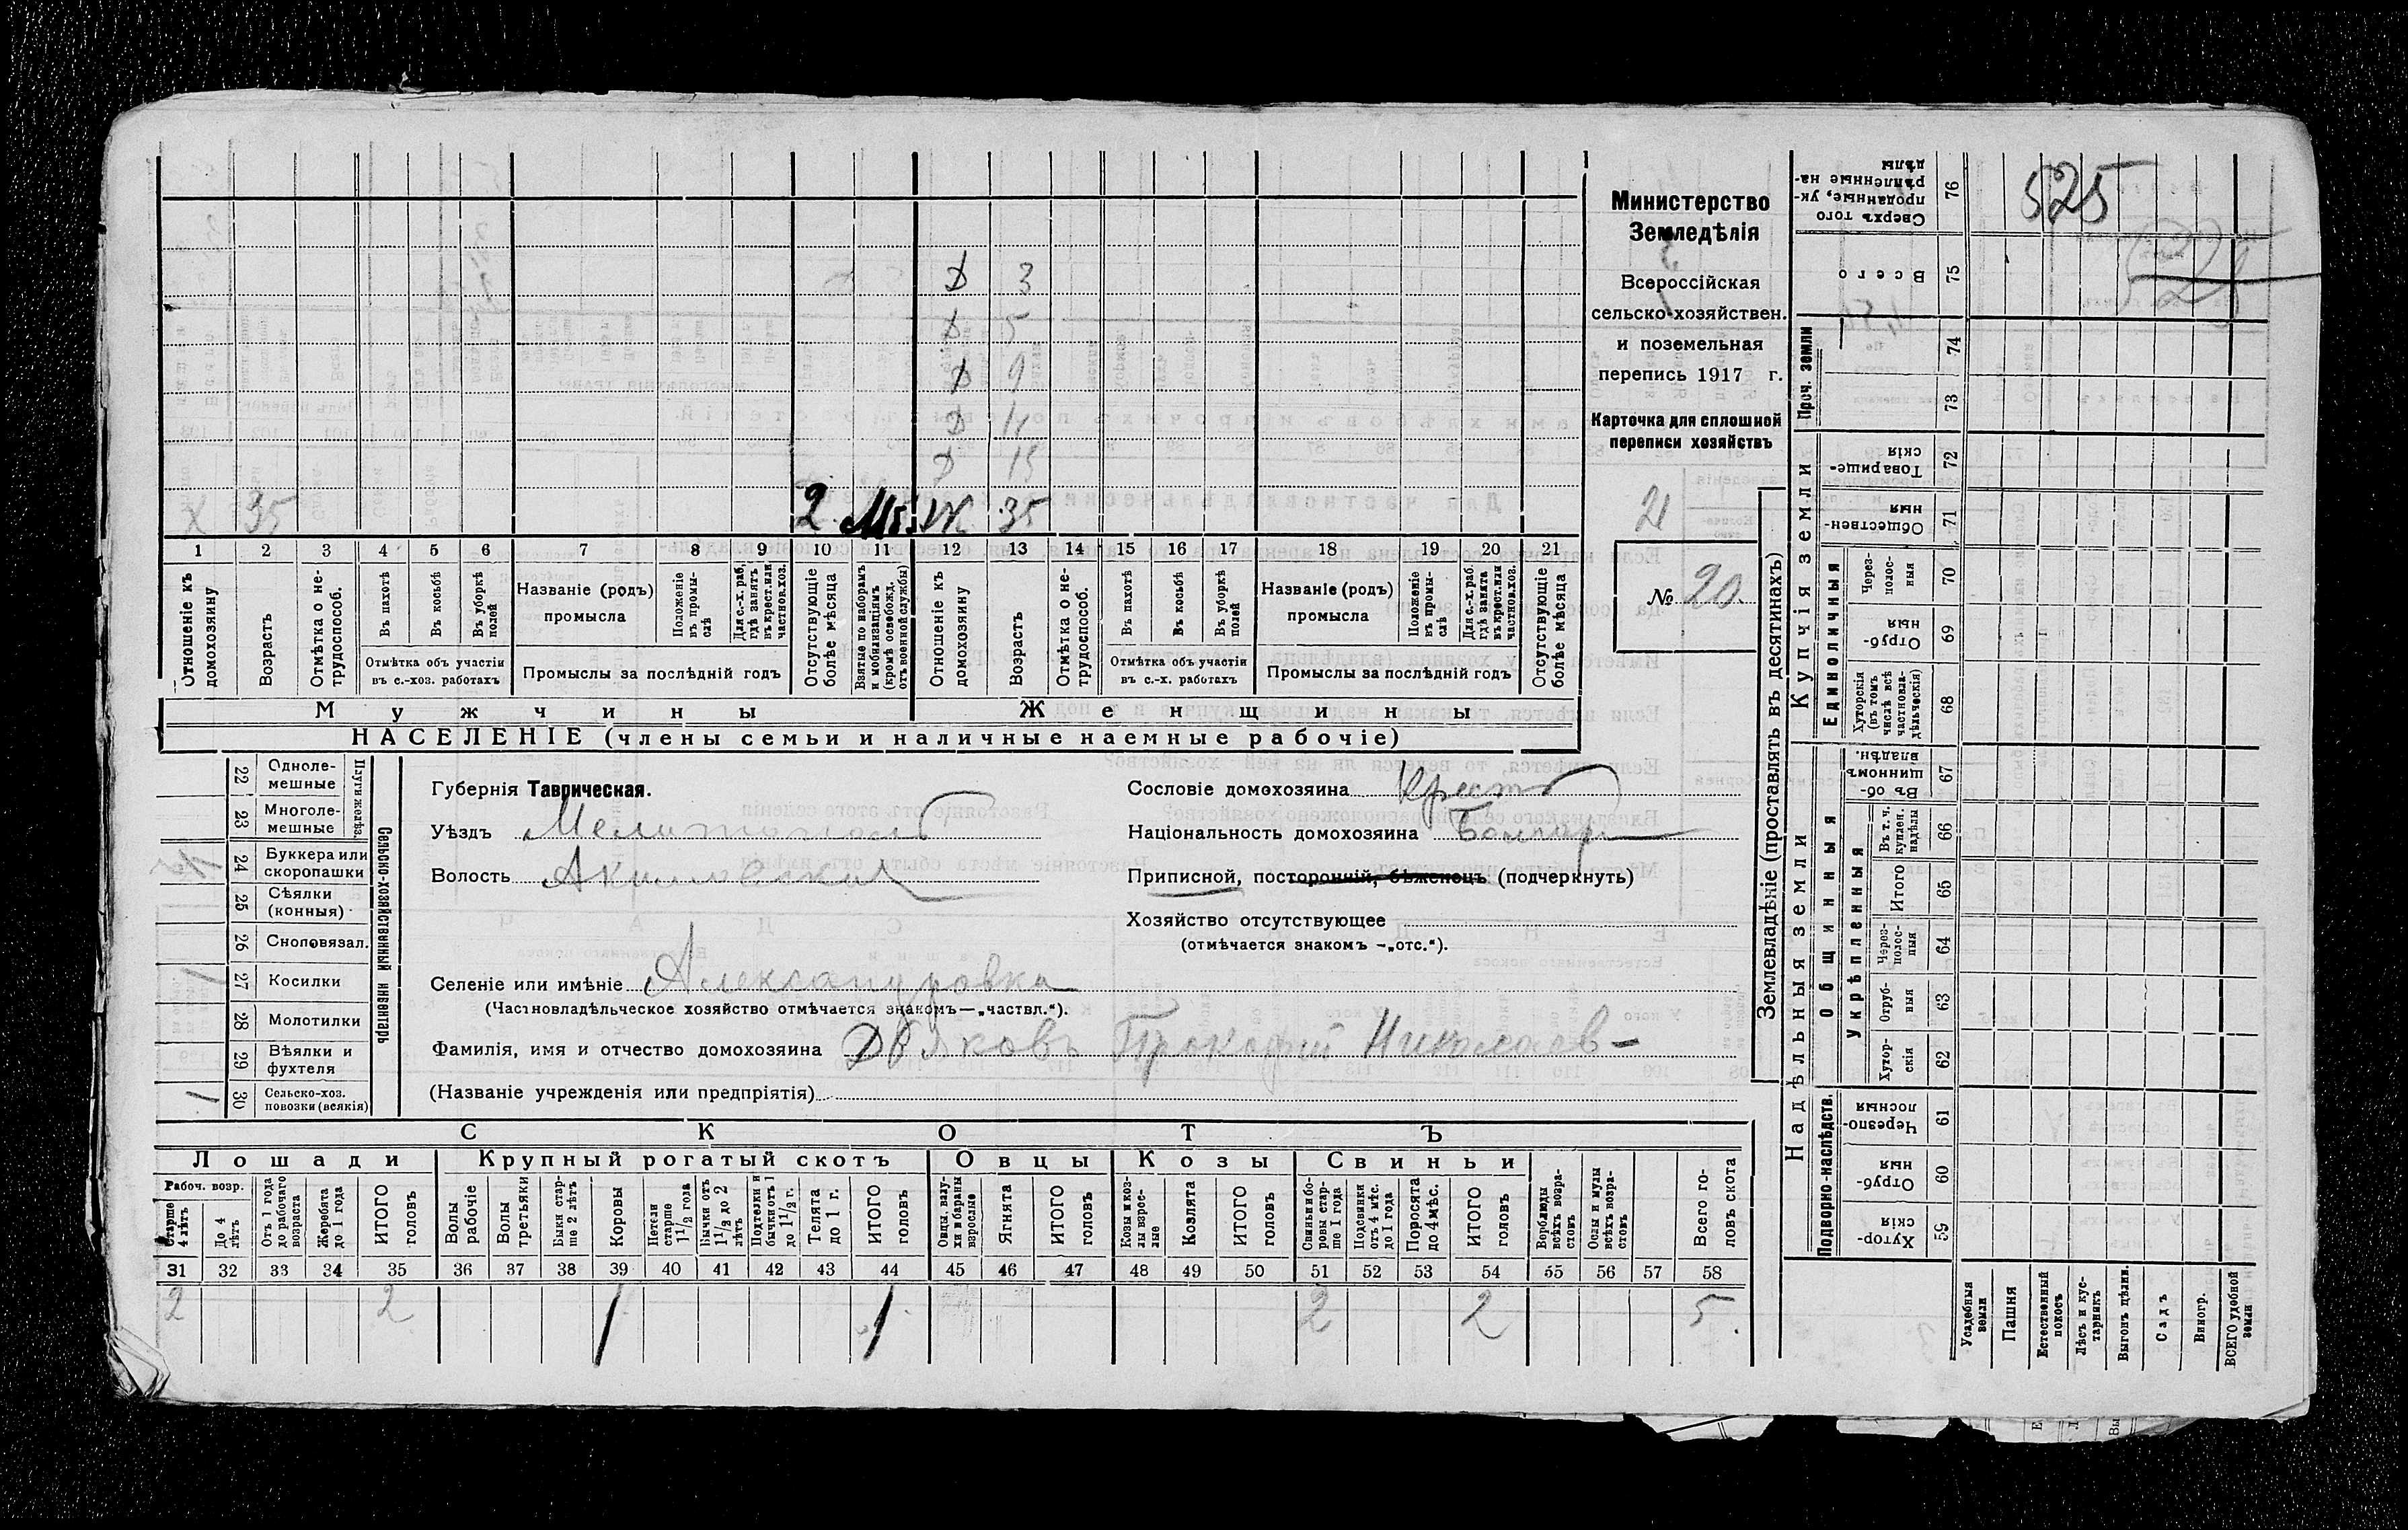 Министерство
Земледѣлія
Всероссійская
сельско-хозяйствен.
и поземельная
перепись 1917 г.
Карточка для сплошной
переписи хозяйствъ
21
№ 20.
525
Д 3
Д 5
Д 9
Д 11
Д 15
Х 35 2 Ж 35
1 2 3 4 5 6 7 8 9 10 11 12 13 14 15 16 17 18 19 20 21
Отношеніе къ домохозяину
Возрастъ
Отмѣтка о не-трудоспособ.
Въ пахотѣ
Въ косьбѣ
Въ уборкѣ полей
Отмѣтка объ участіи
въ с.-хоз. работахъ
Названіе (родъ)
промысла
Положеніе въ промы-слѣ
Для с.-х. раб. гдѣ занятъ въ крест. или частнов. хоз.
Промыслы за послѣдній годъ
Отсутствующіе болѣе мѣсяца
Взятые по наборамъ и мобилизаціямъ (кромѣ освобожд. отъ военной службы)
Отношеніе къ домохозяину
Возрастъ
Отмѣтка о не-трудоспособ.
Въ пахотѣ
Въ косьбѣ
Въ уборкѣ полей
Отмѣтка объ участіи
въ с.-х. работахъ
Названіе (родъ)
промысла
Положеніе въ промы-слѣ
Для с.-х. раб. гдѣ занята въ крест. или частнов. хоз.
Промыслы за послѣдній годъ
Отсутствующіе болѣе мѣсяца
Мужчины Женщины
НАСЕЛЕНІЕ (члены семьи и наличные наемные рабочіе)
22 Однолемешные
23 Многолемешные
Плуги желѣз.
24 Буккера или скоропашки
25 Сѣялки (конныя)
26 Сноповязал.
1 27 Косилки
28 Молотилки
29 Вѣялки и фухтеля
1 30 Сельско-хоз. повозки (всякія)
Сельско-хозяйственный инвентарь
Губернія Таврическая.
Уѣздъ Мелитополь
Волость Акимовская
Сословіе домохозяина Крест
Національность домохозяина Болгар
Приписной, посторонній, бѣженецъ (подчеркнуть)
Хозяйство отсутствующее
(отмѣчается знакомъ -„отс.“).
Селеніе или имѣніе Александровка
(Частновладѣльческое хозяйство отмѣчается знакомъ—„частвл.“).
Фамилія, имя и отчество домохозяина Дьяковъ Прокофій Николаев-
(Названіе учрежденія или предпріятія)
СКОТЪ
Лошади Крупный рогатый скотъ Овцы Козы Свиньи
Рабоч. возр.
Старше 4 лѣтъ
До 4 лѣтъ
Отъ 1 года до рабочаго возраста
Жеребята до 1 года
ИТОГО головъ
Волы рабочіе
Волы третьяки
Быки стар-ше 2 лѣтъ
Коровы
Нетели старше 1 1/2 года
Бычки отъ 1 1/2 до 2 лѣтъ
Подтелки и бычки отъ 1 до 1 1/2 г.
Телята до 1 г.
ИТОГО головъ
Овцы, валу-хи и бараны взрослые
Ягнята
ИТОГО головъ
Козы и коз-лы взрос-лые
Козлята
ИТОГО головъ
Свиньи и бо-ровы стар-ше 1 года
Подсвинки отъ 4 мѣс. до 1 года
Поросята до 4 мѣс.
ИТОГО головъ
Верблюды всѣхъ возра-стовъ
Ослы и мулы всѣхъ возра-стовъ
Всего го-ловъ скота
31 32 33 34 35 36 37 38 39 40 41 42 43 44 45 46 47 48 49 50 51 52 53 54 55 56 57 58
2 2 1 1 2 2 5
Землевладѣніе (проставлять въ десятинахъ)
Сверхъ того проданные, ук-рѣпленные на-дѣлы 76
Всего 75
Проч. земли 74 73
Купчія земли
Товарище-скія 72
Обществен-ныя 71
Единоличныя
Через-полос-ныя 70
Отруб-ныя 69
Хуторскія (въ томъ числѣ всѣ частновла-дѣльческія) 68
Надѣльныя земли
Общинныя
Въ об-щинномъ владѣн. 67
Укрѣпленныя
Въ т. ч. куплен. надѣлы 66
ИТОГО 65
Через-полос-ныя 64
Отруб-ныя 63
Хутор-скія 62
Подворно-наслѣдств.
Черезпо-лосныя 61
Отруб-ныя 60
Хутор-скія 59
Усадебныя земли
Пашня
Естественный покосъ
Лѣсъ и кус-тарникъ
Выгонъ цѣлин.
Садъ
Виногр.
ВСЕГО удобной земли